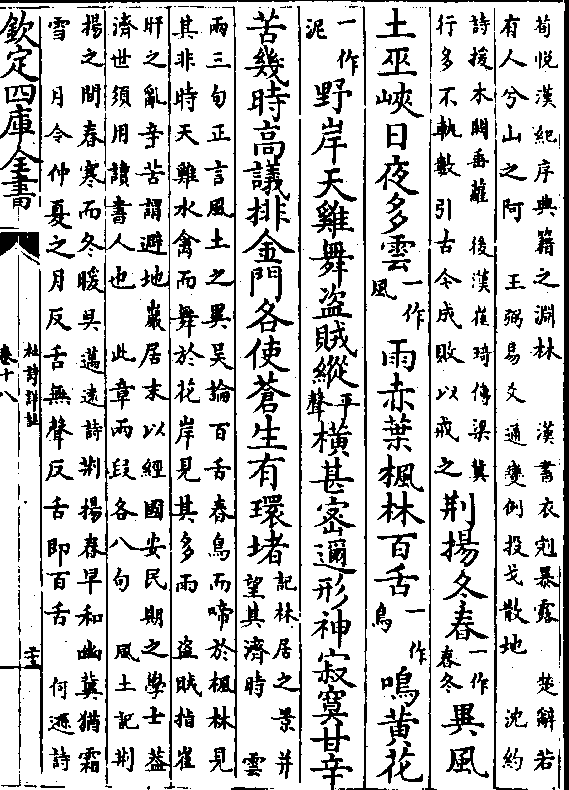 荀悅漢紀序典籍之淵林 漢書衣冠暴露 楚辭若
有人兮山之阿 王弼易爻通變例投戈散地 沈約
詩援木闕垂蘿 後漢崔琦傳梁冀
行多不軌數引古今成敗以戒之
荆揚冬春一作春冬異風
土巫峽日夜多雲一作風雨赤葉楓林百舌一作鳥鳴黄花
一作泥野岸天雞舞盗賊縱平聲橫甚密邇形神寂寞甘辛
苦幾時高議排金門各使蒼生有環堵
記林居之景并
望其濟時 雲
雨三句正言風土之異吴論百舌春鳥而啼於楓林見
其非時天雞水禽而舞於花岸見其多雨 盗賊指崔
旰之亂辛苦謂避地巖居末以經國安民期之學士蓋
濟世須用讀書人也 此章兩段各八句 風土記荆
揚之間春寒而冬暖吴邁遠詩荆揚春早和幽冀猶霜
雪 月令仲夏之月反舌無聲反舌即百舌 何遜詩
欽定四庫全書
杜詩詳註
卷十八
二十三